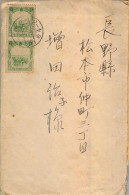 長野縣
松本市仲町三丁目
増田治子様